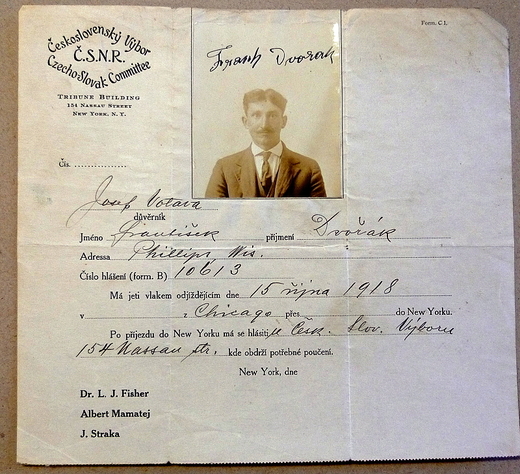 Form. C I.
Československý Výbor
Č.S.N.R.
Czecho-Slovak Committee
Tribune Building
154 Nassau Street
New York, N. Y.
Frank Dvorak
Čís. ................
Josef Votava
důvěrník
Jméno František příjmení Dvořák
Adressa Phillips, Wis.
Číslo hlášení (form. B) 10613
Má jeti vlakem odjíždějícím dne 15 října 1918
v z Chicago přes do New Yorku.
Po příjezdu do New Yorku má se hlásiti u Česk. Slov. Výboru
154 Nassau str. kde obdrží potřebné poučení.
New York, dne
Dr. L. J. Fisher
Albert Mamatej
J. Straka